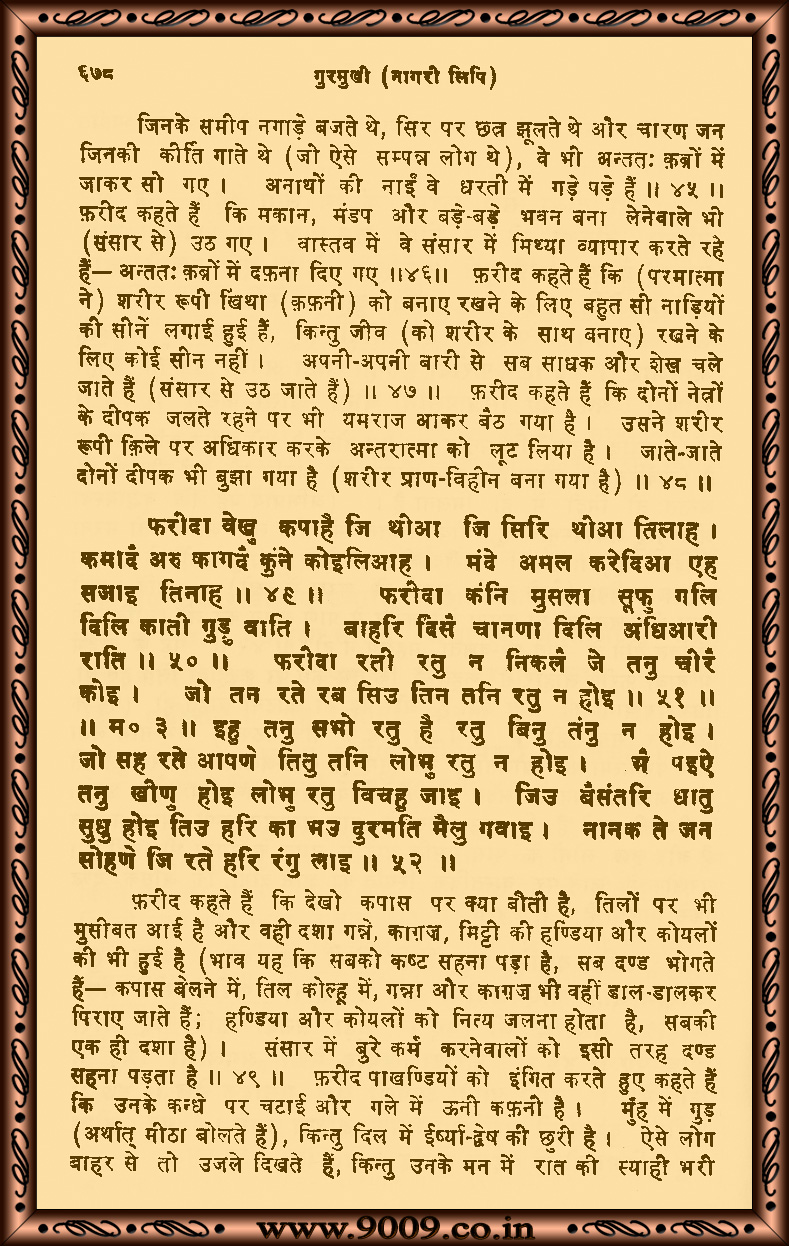 ६७८ गुरमुखी (नागरी लिपि)
जिनके समीप नगाड़े बजते थे, सिर पर छत्र झूलते थे और चारण जन
जिनकी कीर्ति गाते थे (जो ऐसे सम्पन्न लोग थे), वे भी अन्ततः क़ब्रों में
जाकर सो गए। अनाथों की नाईं वे धरती में गड़े पड़े हैं ॥ ४५ ॥
फ़रीद कहते हैं कि मकान, मंडप और बड़े-बड़े भवन बना लेनेवाले भी
(संसार से) उठ गए। वास्तव में वे संसार में मिथ्या व्यापार करते रहे
हैं— अन्ततः क़ब्रों में दफ़ना दिए गए ॥४६॥ फ़रीद कहते हैं कि (परमात्मा
ने) शरीर रूपी खिंथा (क़फ़नी) को बनाए रखने के लिए बहुत सी नाड़ियों
की सीनें लगाई हुई हैं, किन्तु जीव (को शरीर के साथ बनाए) रखने के
लिए कोई सीन नहीं। अपनी-अपनी बारी से सब साधक और शेख़ चले
जाते हैं (संसार से उठ जाते हैं) ॥ ४७ ॥ फ़रीद कहते हैं कि दोनों नेत्रों
के दीपक जलते रहने पर भी यमराज आकर बैठ गया है। उसने शरीर
रूपी क़िले पर अधिकार करके अन्तरात्मा को लूट लिया है। जाते-जाते
दोनों दीपक भी बुझा गया है (शरीर प्राण-विहीन बना गया है) ॥ ४८ ॥
फरीदा वेखु कपाहै जि थीआ जि सिरि थीआ तिलाह।
कमादै अरु कागदै कुंने कोइलिआह। मंदे अमल करेदिआ एह
सजाइ तिनाह ॥ ४९ ॥ फरीदा कंनि मुसला सूफु गलि
दिलि काती गुड़ु वाति। बाहरि दिसै चानणा दिलि अंधिआरी
राति ॥ ५० ॥ फरीदा रती रतु न निकलै जे तनु चीरै
कोइ। जो तन रते रब सिउ तिन तनि रतु न होइ ॥ ५१ ॥
॥ म० ३ ॥ इहु तनु सभो रतु है रतु बिनु तंनु न होइ।
जो सह रते आपणे तितु तनि लोभु रतु न होइ। भै पइऐ
तनु खीणु होइ लोभु रतु विचहु जाइ। जिउ बैसंतरि धातु
सुधु होइ तिउ हरि का भउ दुरमति मैलु गवाइ। नानक ते जन
सोहणे जि रते हरि रंगु लाइ ॥ ५२ ॥
फ़रीद कहते हैं कि देखो कपास पर क्या बीती है, तिलों पर भी
मुसीबत आई है और वही दशा गन्ने, काग़ज़, मिट्टी की हण्डिया और कोयलों
की भी हुई है (भाव यह कि सबको कष्ट सहना पड़ा है, सब दण्ड भोगते
हैं— कपास बेलने में, तिल कोल्हू में, गन्ना और काग़ज़ भी वहीं डाल-डालकर
पिराए जाते हैं; हण्डिया और कोयलों को नित्य जलना होता है, सबकी
एक ही दशा है)। संसार में बुरे कर्म करनेवालों को इसी तरह दण्ड
सहना पड़ता है ॥ ४९ ॥ फ़रीद पाखण्डियों को इंगित करते हुए कहते हैं
कि उनके कन्धे पर चटाई और गले में ऊनी कफ़नी है। मुँह में गुड़
(अर्थात् मीठा बोलते हैं), किन्तु दिल में ईर्ष्या-द्वेष की छुरी है। ऐसे लोग
बाहर से तो उजले दिखते हैं, किन्तु उनके मन में रात की स्याही भरी
www.9009.co.in